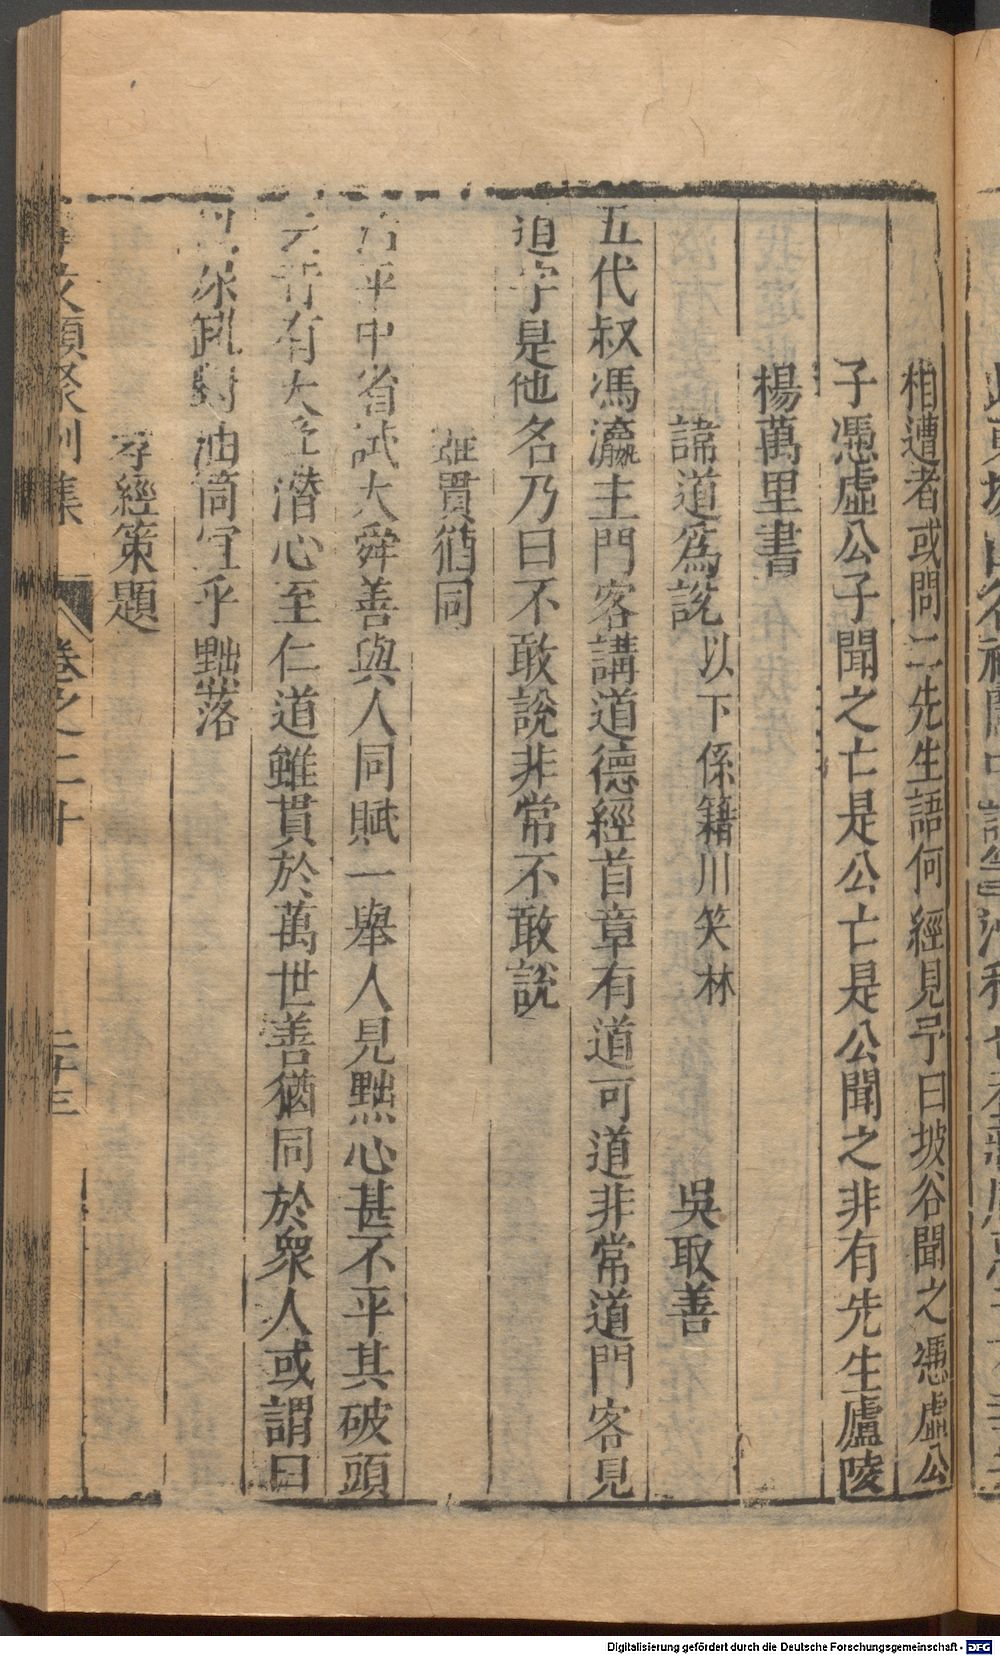 相遭者或問二先生語何經見予曰坡谷聞之憑虛公
子憑虛公子聞之亡是公亡是公聞之非有先生廬陵
楊萬里書
諱道為說 以下係籍川笑林 吳取善
五代叔馮瀛主門客講道德經首章有道可道非常道門客見
道字是他名乃曰不敢說非常不敢說
雖貫猶同
平中省試大舜善與人同賦一舉人見黜心甚不平其破頭
有大 潛心至仁道雖貫於萬世善猶同於衆人或謂曰
尿缸對油筒宜乎黜落
經策題
文類聚別集 卷之二十 二十三
Digitalisierung gefördert durch die Deutsche Forschungsgemeinschaft - DFG